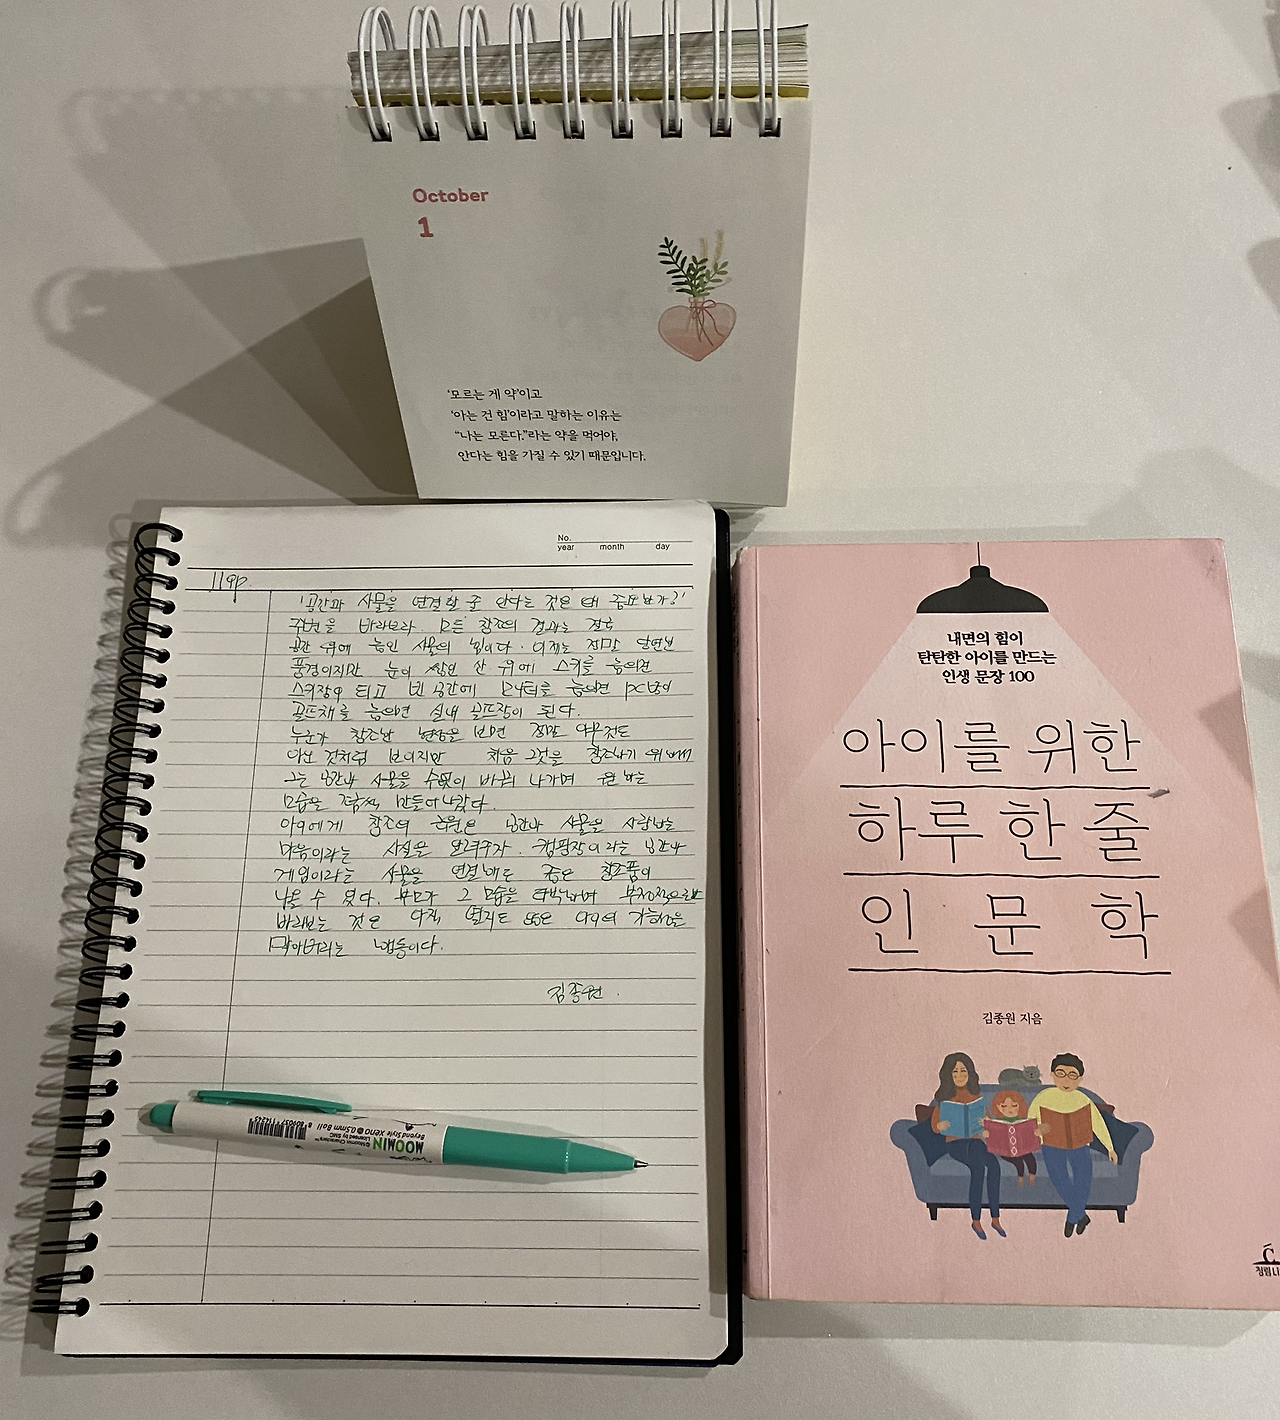 October
1
'모르는 게 약'이고
'아는 건 힘'이라고 말하는 이유는
"나는 모른다."라는 약을 먹어야,
안다는 힘을 가질 수 있기 때문입니다.
No.
year month day
119p.
'공간과 사물을 연결할 줄 안다는 것은 왜 중요한가?'
주변을 바라보라. 모든 창조의 결과는 결국
공간 위에 놓인 사물의 합이다. 이제는 정말 당연한
풍경이지만 눈이 쌓인 산 위에 스키를 놓으면
스키장이 되고 빈 공간에 모니터를 놓으면 pc방이
골프채를 놓으면 실내 골프장이 된다.
누군가 창조한 현장을 보면 정말 아무것도
아닌 것처럼 보이지만 처음 그것을 창조하기 위해서
그는 공간과 사물을 수없이 바꿔 나가며 원하는
모습을 겨우 만들어 나갔다.
아이에게 창조의 근원은 공간과 사물을 사랑하는
마음이라는 사실을 알려주자. 캠핑장이라는 공간과
게임이라는 사물을 연결해도 좋은 창조품이
나올 수 있다. 부모가 그 모습을 타박하며 부정적으로
바라보는 것은 아직 펼치도 않은 아이의 가능성을
막아버리는 행동이다.
김종원.
MOOMIN
©Moomin Characters™
Licensed by SMC
Beyond Style Xeno 0.5mm Ball
8 809057 114245
내면의 힘이
탄탄한 아이를 만드는
인생 문장 100
아이를 위한
하루 한 줄
인문학
김종원 지음